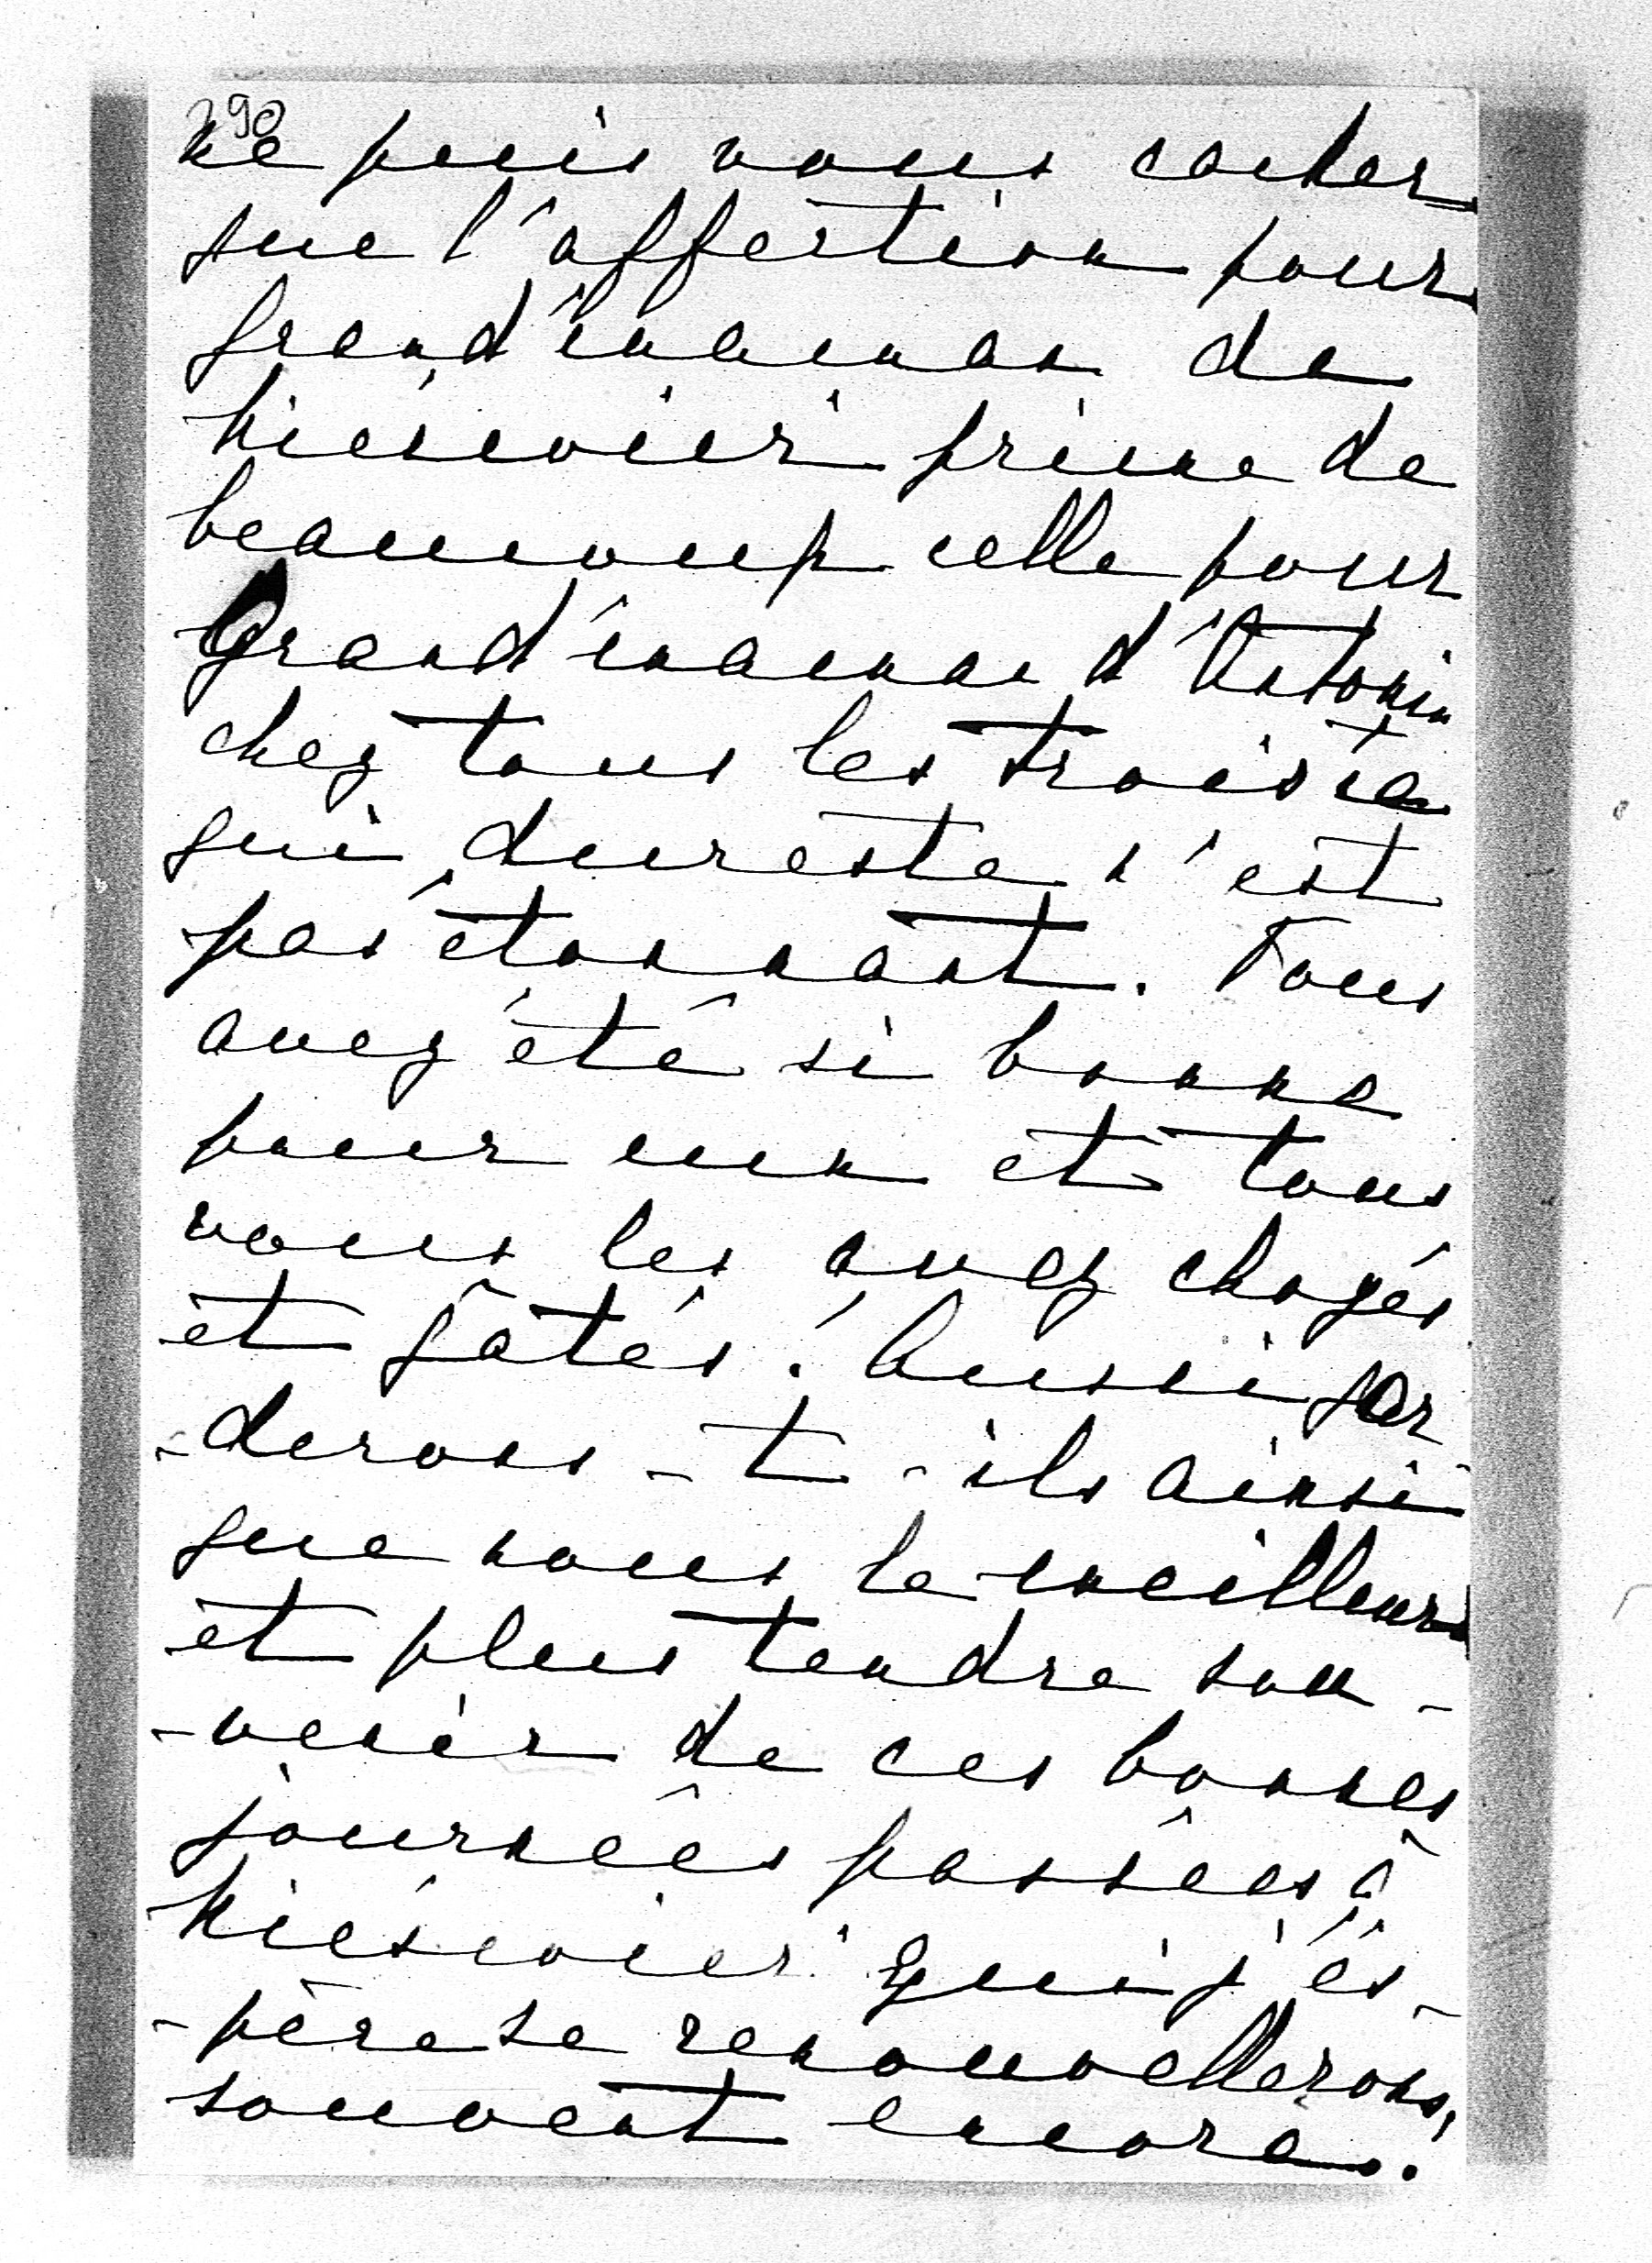 290
ne puis vous cacher
que l'affection pour
grand'maman de
Niéswież prime de
beaucoup celle pour
Grand'maman d'Antonin
chez tous les trois ce
qui dureste n'est
pas étonnant. Vous
avez été si bonne
pour eux et tous
vous les avez choyés
et gâtés! Aussi gar
-derons-t-ils ainsi
que nous le meilleur
et plus tendre sou-
-venir de ces bonnes
journées passées à
Niéswież qui j'és-
-père se renouvellerons,
souvent encore.